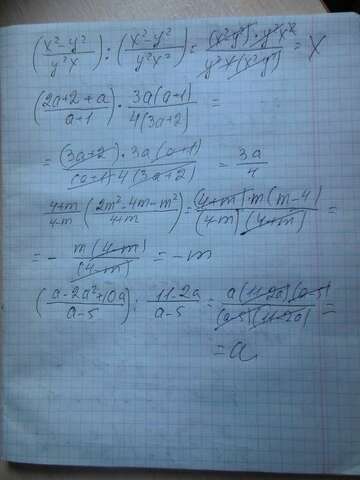 (x²-y²/y²x) : (x²-y²/y²x²) = (x²-y²)·y²x²/y²x(x²-y²) = x
(2a+2+a/a+1) · 3a(a+1)/4(3a+2) =
= (3a+2)·3a(a+1)/(a+1)·4(3a+2) = 3a/4
4+m/4-m (2m²-4m-m²/4+m) = (4+m)·m(m-4)/(4-m)(4+m) =
= - m(4-m)/(4-m) = -m
(a-2a²+10a/a-5) : 11-2a/a-5 = a(11-2a)(a-5)/(a-5)(11-2a) =
= a